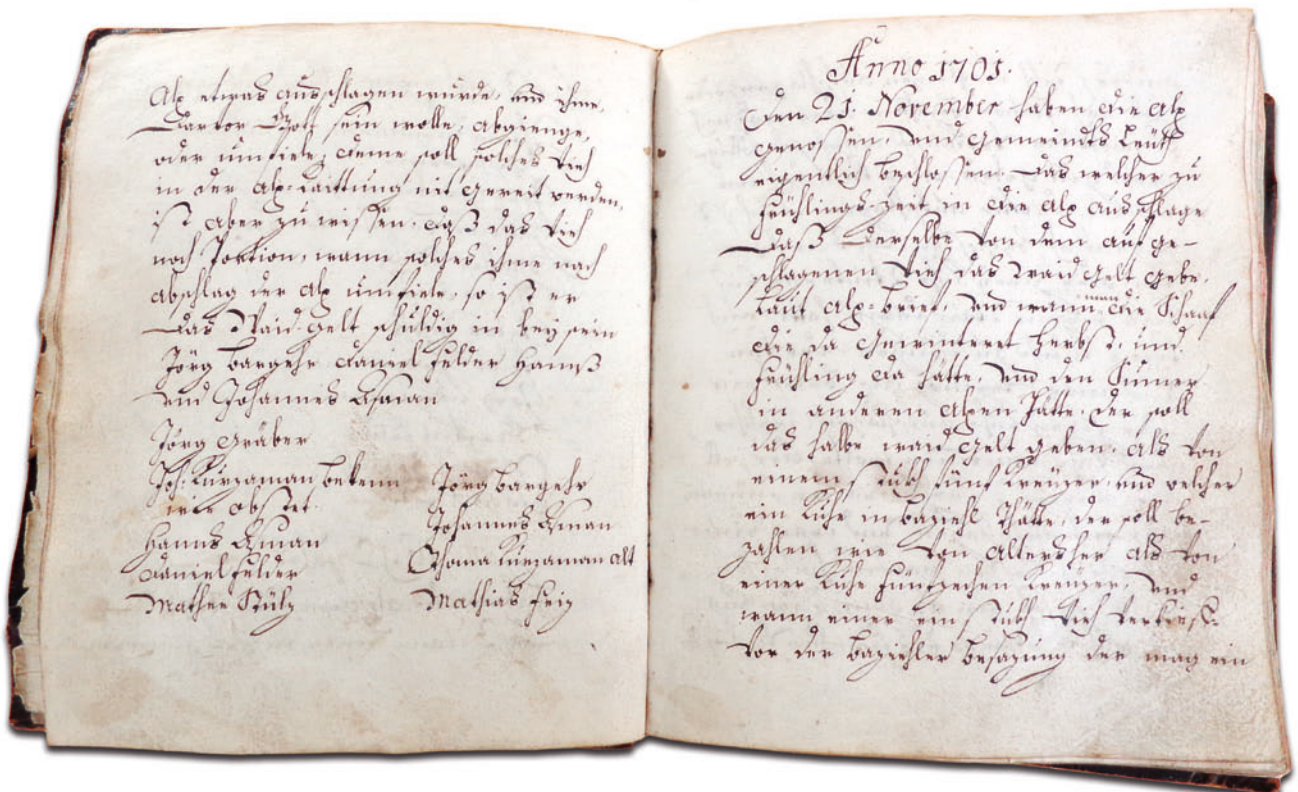 Alp etwas ausschlagen wurde, und ihme,
Darvor Gott sein wolle, abgienge,
oder umfiele, deme soll solches Vieh
in der Alp-Raittung nit gereit werden,
ist aber zu wissen, daß das Vieh
noch wann solches ihme nach
abschlag der Alp umfiele, so ist er
Das Waid-gelt schuldig in bey sein
Jörg bargehr Daniel felder Hannß
und Johannes
Jörg gräber
Joh: Kürzaman bekenn Jörg bargehr
wie obstet. Johannes
Hanns Thoma Kürzaman alt
Daniel felder
Mathee Stülz Mathias feiz
Anno 1701.
Den 21. November haben die Alp
genossen, und gemeindts Leüth
eigentlich beschlossen. Das welcher zu
frühlings-zeit in die Alp ausschlage
Daß Derselbe von dem aufge-
schlagenen Vieh das waid gelt gebe,
laut Alp-brief, und wann man die Schaaf
die da gewinteret herbst, und
frühling da hätte, und den Sumer
in anderen Alpen hätte, der soll
das halbe waid gelt geben, als von
einem stukh fünf Kreüzer, und welcher
ein Kuhe in baziehl hätte, der soll be-
zahlen wie von altersher als von
einer Kuhe fünfzechen Kreüzer, und
wann einer ein stukh Vieh
vor der baziehler besazung der mag ein